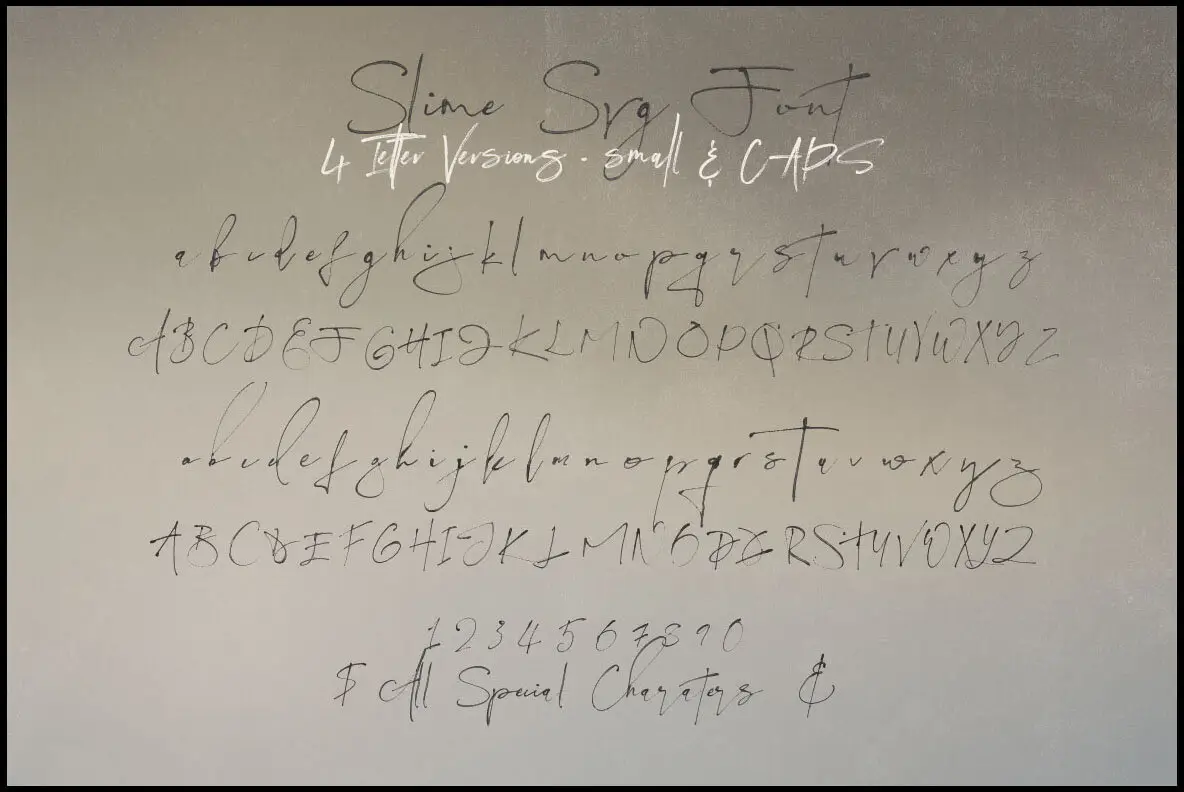 Slime Svg Font
4 letter Versions - small & CAPS
a b c d e f g h i j k l m n o p q r s t u v w x y z
A B C D E F G H I J K L M N O P Q R S t U V W X Y Z
a b c d e f g h i j k l m n o p q r s t u v w x y z
A B C D E F G H I J K L M N O P Q R S t U V W X Y Z
1 2 3 4 5 6 7 8 9 0
$ All Special Charaters &